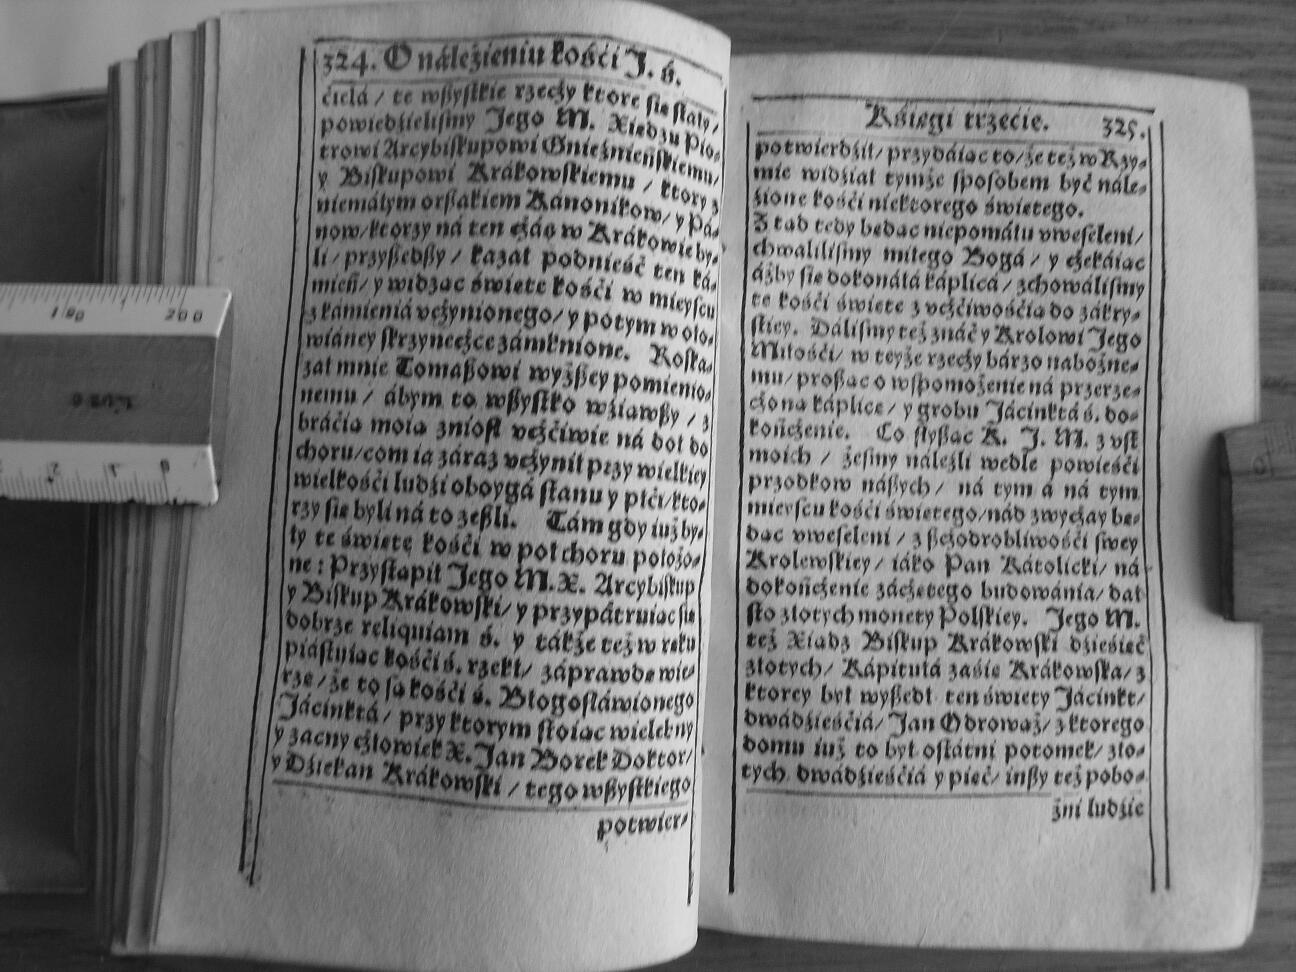 324. O náleźieniu kośći J. ś.
ćielá / te wßyſtkie rzeczy ktore ſie ſtáły /
powiedźieliſmy Jego M. Xiedzu Pio-
trowi Arcybiſkupowi Gnieźnieńſkiemu /
y Biſkupowi Krákowſkiemu / ktory z
niemáłym orßakiem Kánonikow / y Pá-
now / ktorzy ná ten czás w Krákowie by-
li / przyßedßy / kazał podnieść ten ká-
mień / y widzac świete kośći w mieyſcu
z kámieniá vczynionego / y potym w oło-
wiáney ſkrzyneczce zámknione. Roſka-
zał mnie Tomaßowi wyżßey pomienio-
nemu / ábym to wßyſtko wźiawßy / z
bráćia moia znioſł vczćiwie ná doł do
choru / com ia záraz vczynił przy wielkiey
wielkośći ludźi oboygá ſtanu y płći / kto-
rzy ſie byli ná to zeßli. Tám gdy iuż by-
ły te świete kośći w poł choru położo-
ne : Przyſtapił Jego M. X. Arcybiſkup
y Biſkup Krákowſki / y przypátruiac ſie
dobrze reliquiam ś. y tákże też w reku
piáſtuiac kośći ś. rzekł / záprawde wie-
rze / że to ſa kośći ś. Błogoſłáwionego
Jácinktá / przy ktorym ſtoiac wielebny
y zacny człowiek X. Jan Borek Doktor /
y Dźiekan Krákowſki / tego wßyſtkiego
potwier-
Kśiegi trzećie. 325.
potwierdźił / przydáiac to / że też w Rzy-
mie widźiał tymże ſpoſobem być nále-
źione kośći niektorego świetego.
Z tad tedy bedac niepomáłu vweſeleni /
chwaliliſmy miłego Bogá / y czekáiac
áżby ſie dokonáłá káplicá / zchowáliſmy
te kośći świete z vczćiwośćia do zákry-
ſtiey. Dáliſmy też znáć y Krolowi Jego
Miłośći / w teyże rzeczy bárzo nabożne-
mu / proßac o wſpomożenie ná przerze-
czona káplice / y grobu Jácinktá ś. do-
kończenie. Co ſłyßac K. J. M. z vſt
moich / żeſmy náleźli wedle powieśći
przodkow náßych / ná tym á ná tym
mieyſcu kośći świetego / nád zwyczay be-
dac vweſeleni / z ßczodrobliwośći ſwey
Krolewſkiey / iáko Pan Kátolicki / ná
dokończenie záczetego budowánia / dał
ſto złotych monety Polſkiey. Jego M.
też Xiadz Biſkup Krákowſki dźieśieć
złotych / Kápitułá záśie Krákowſka / z
ktorey był wyßedł ten świety Jácinkt /
dwádźieśćiá / Jan Odroważ / z ktorego
domu iuż to był oſtátni potomek / zło-
tych dwádźieśćiá y pieć / inßy też pobo-
żni ludźie